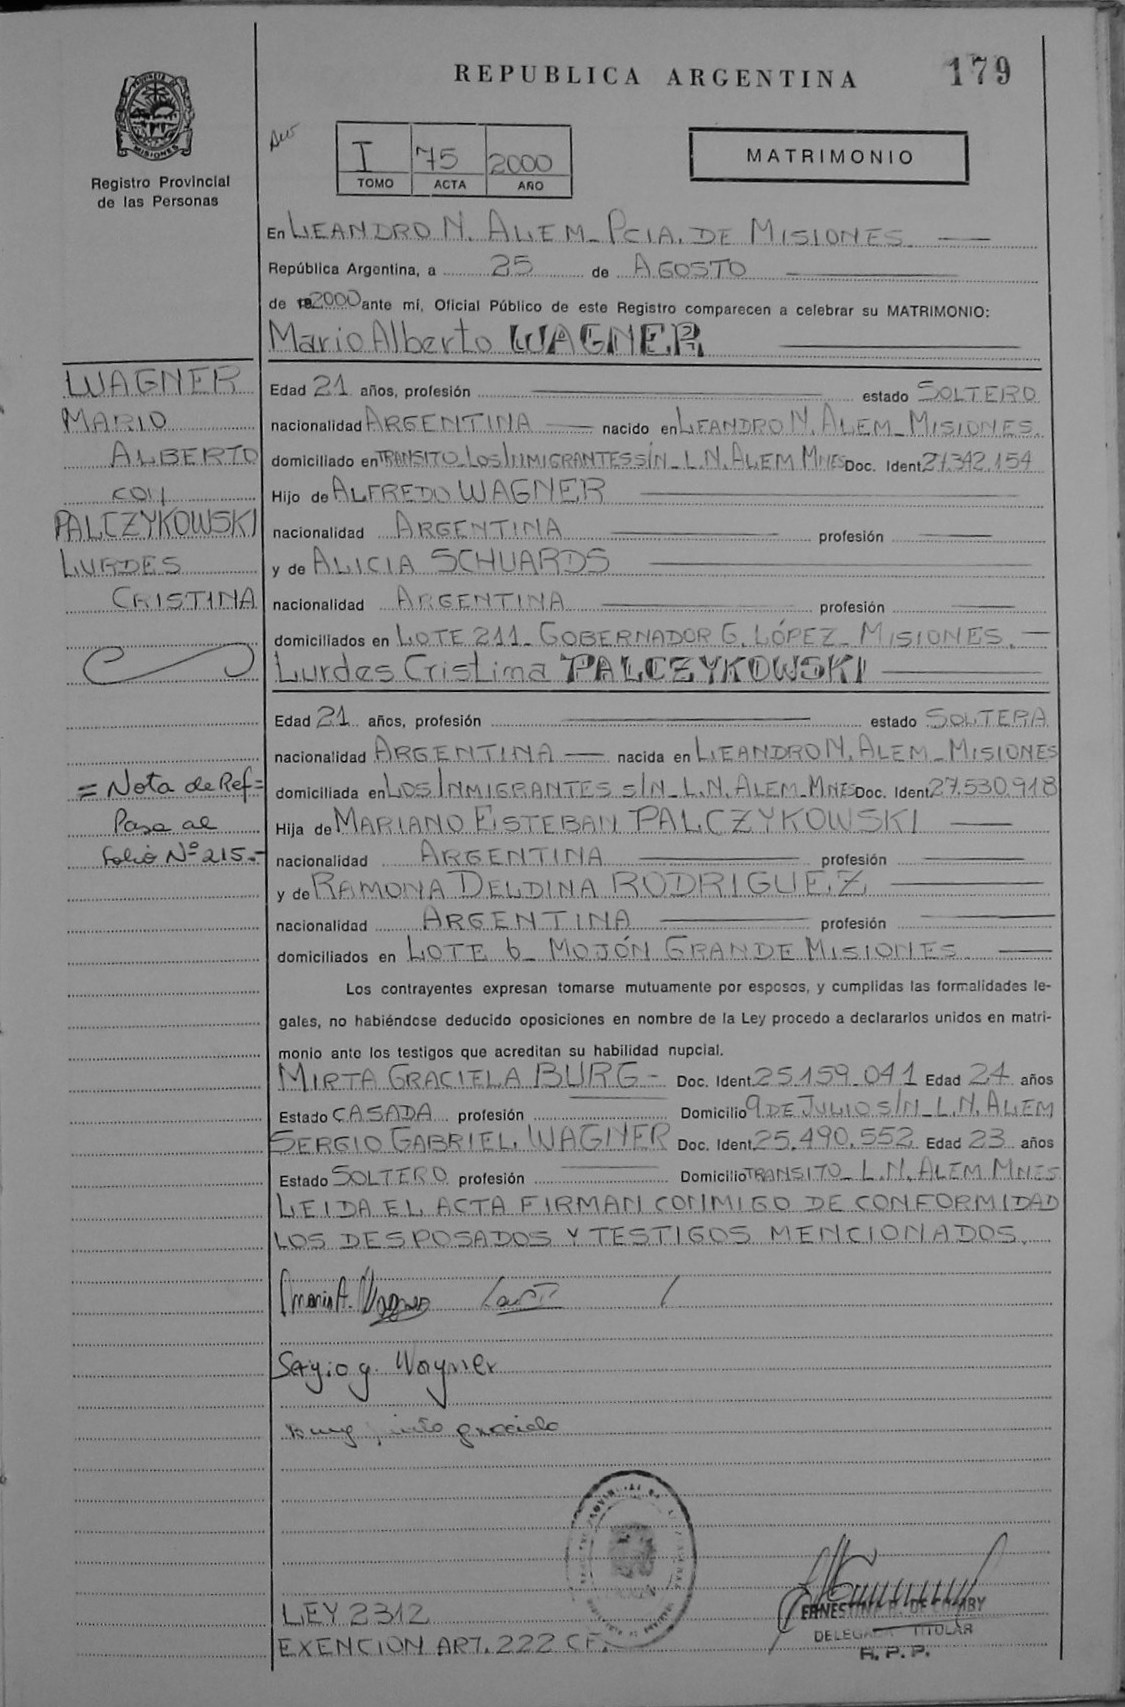 REPUBLICA ARGENTINA
179
MISIONES
Registro Provincial
de las Personas
I 75 2000
TOMO ACTA AÑO
MATRIMONIO
En LEANDRO N. ALEM_ PCIA. DE MISIONES
República Argentina, a 25 de AGOSTO
de 2000 ante mí, Oficial Público de este Registro comparecen a celebrar su MATRIMONIO:
Mario Alberto WAGNER
WAGNER
MARIO
ALBERTO
CON
PALCZYKOWSKI
LURDES
CRISTINA
Edad 21 años, profesión estado SOLTERO
nacionalidad ARGENTINA nacido en LEANDRO N. ALEM_ MISIONES.
domiciliado en TRANSITO_LOS INMIGRANTES S/N_ L.N. ALEM MNES Doc. Ident. 27.342.154
Hijo de ALFREDO WAGNER
nacionalidad ARGENTINA profesión
y de ALICIA SCHUARDS
nacionalidad ARGENTINA profesión
domiciliados en LOTE 211_ GOBERNADOR G. LÓPEZ_ MISIONES.
Lurdes Cristina PALCZYKOWSKI
Edad 21 años, profesión estado SOLTERA
nacionalidad ARGENTINA nacida en LEANDRO N. ALEM_ MISIONES
domiciliada en LOS INMIGRANTES S/N_ L.N. ALEM_MNES Doc. Ident. 27.530.918
Hija de MARIANO ESTEBAN PALCZYKOWSKI
nacionalidad ARGENTINA profesión
y de RAMONA DELDINA RODRIGUEZ
nacionalidad ARGENTINA profesión
domiciliados en LOTE 6_ MOJÓN GRANDE MISIONES
= Nota de Ref =
Pasa al
folio Nº 215.-
Los contrayentes expresan tomarse mutuamente por esposos, y cumplidas las formalidades le-
gales, no habiéndose deducido oposiciones en nombre de la Ley procedo a declararlos unidos en matri-
monio ante los testigos que acreditan su habilidad nupcial.
MIRTA GRACIELA BURG - Doc. Ident. 25.159.041 Edad 24 años
Estado CASADA profesión Domicilio 9 DE JULIO S/N_ L.N. ALEM
SERGIO GABRIEL WAGNER Doc. Ident. 25.490.552 Edad 23 años
Estado SOLTERO profesión Domicilio TRANSITO_ L.N. ALEM MNES
LEIDA EL ACTA FIRMAN CONMIGO DE CONFORMIDAD
LOS DESPOSADOS Y TESTIGOS MENCIONADOS.
Mario A. Wagner
Sergio g. Wagner
Burg graciela
LEY 2312
EXENCION ART. 222 C.F.
TITULAR
R.P.P.